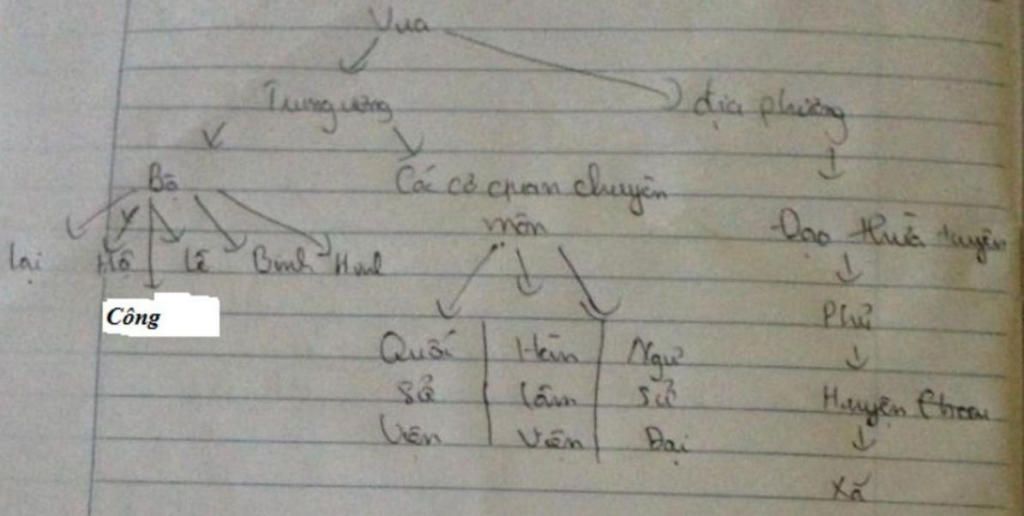 Vua
Trung ương
địa phương
Bộ
Các cơ quan chuyên
môn
Đạo thừa tuyên
Lại Hộ Lễ Binh Hình
Công
Phủ
Quốc Hàn Ngự
Sử lâm sử
Viện Viện Đài
Huyện Châu
Xã